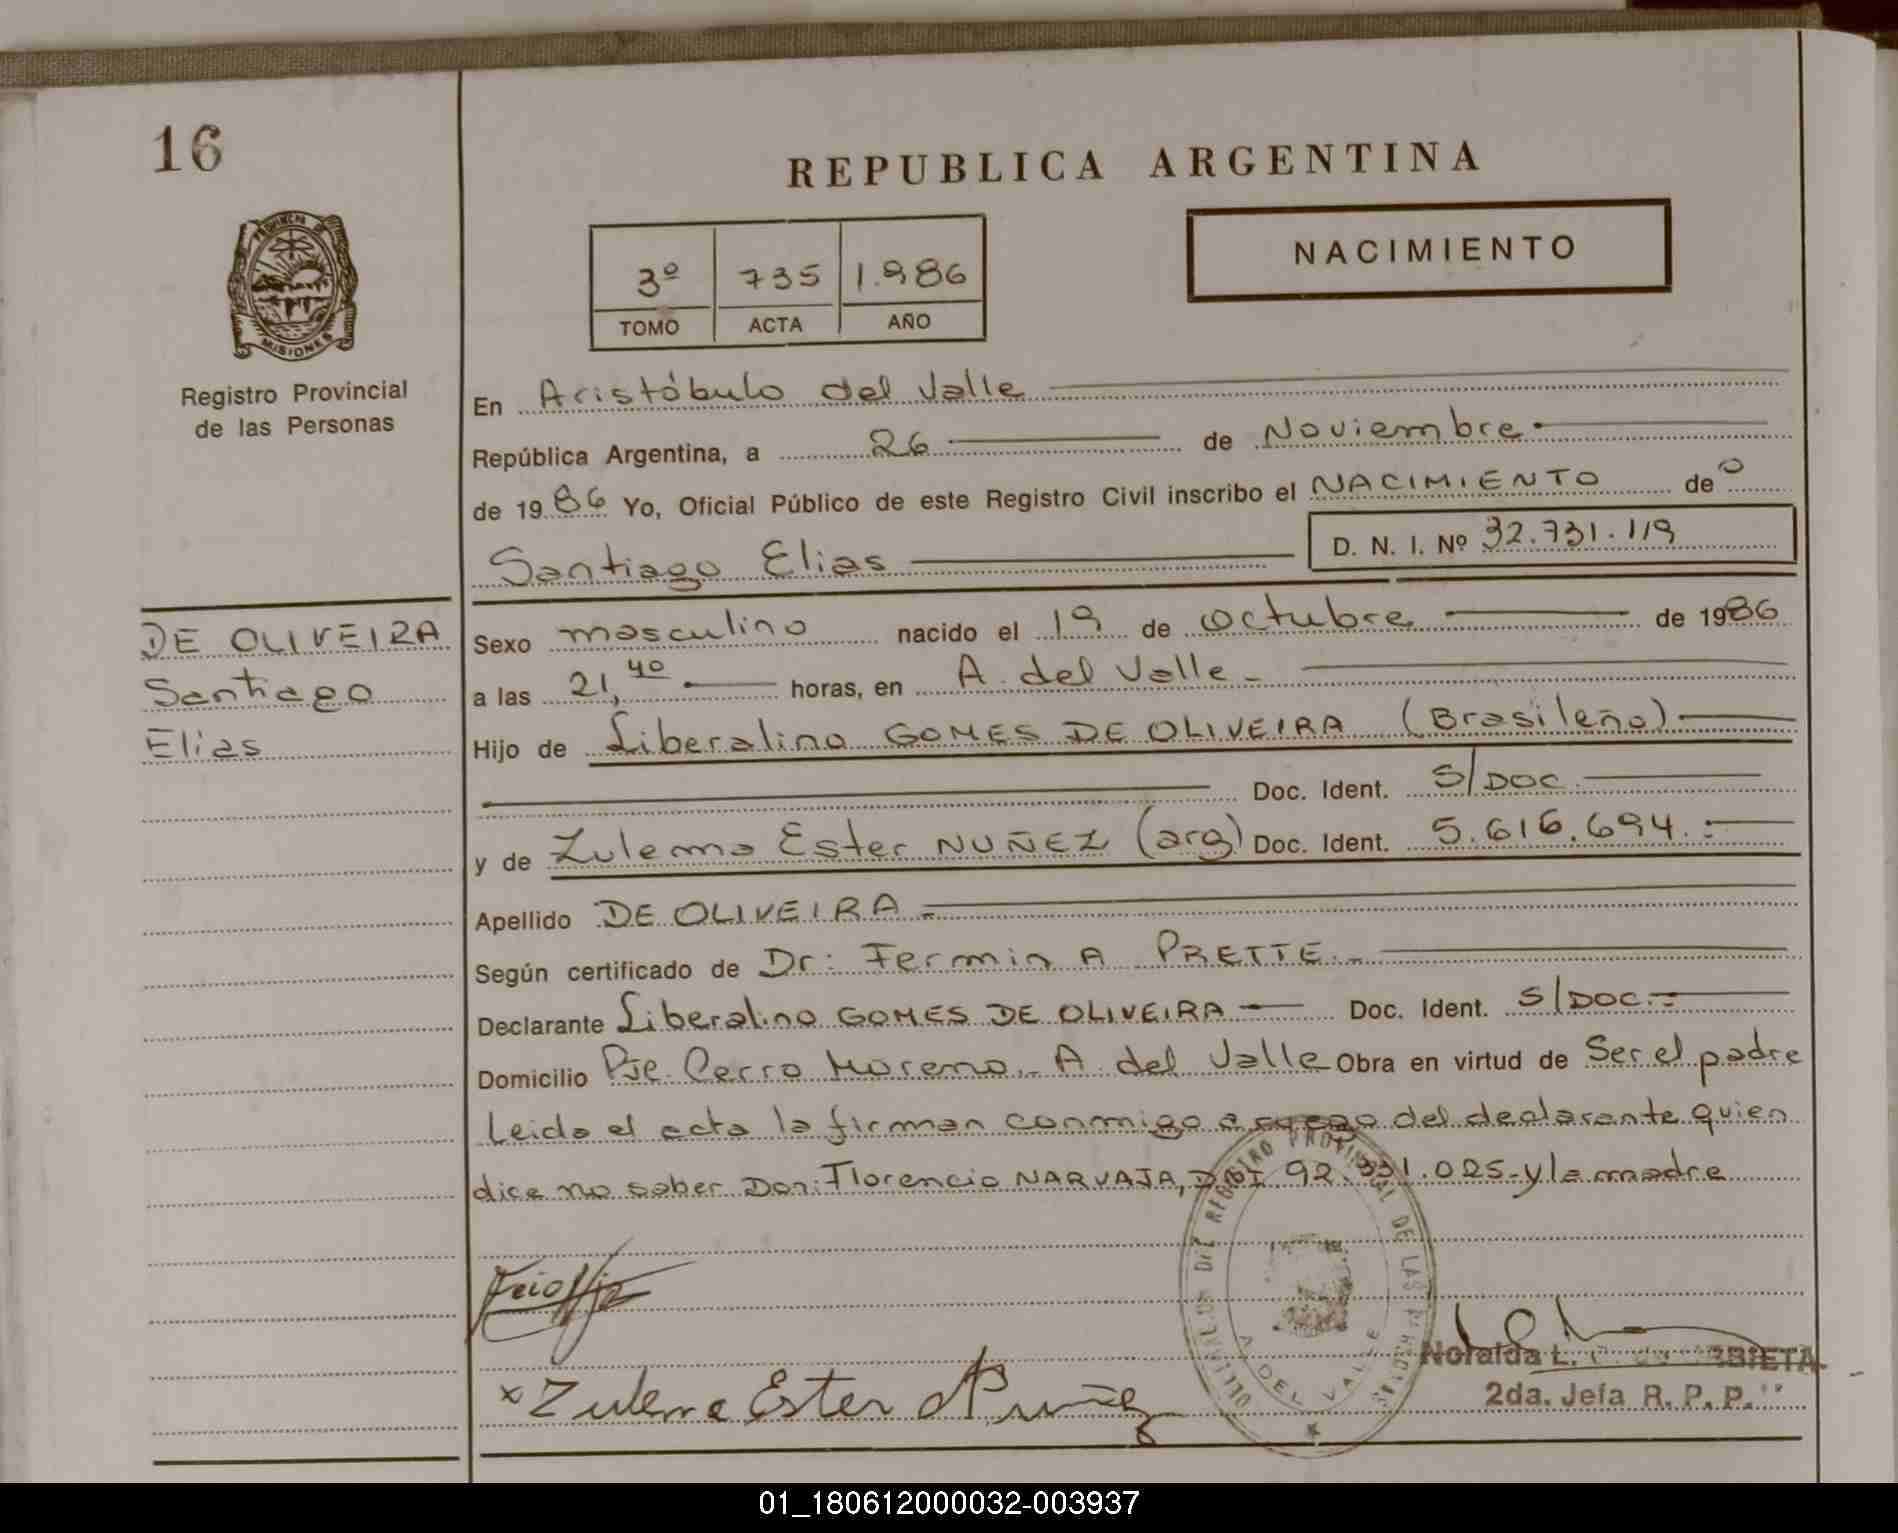 16
REPUBLICA ARGENTINA
PROVINCIA DE
MISIONES
3º 735 1.986
TOMO ACTA AÑO
NACIMIENTO
Registro Provincial
de las Personas
En Aristóbulo del Valle
República Argentina, a 26 de Noviembre
de 1986 Yo, Oficial Público de este Registro Civil inscribo el NACIMIENTO de
Santiago Elias D. N. I. Nº 32.731.119
DE OLIVEIRA
Santiago
Elias
Sexo masculino nacido el 19 de octubre de 1986
a las 21,40 horas, en A. del Valle.-
Hijo de Liberalino GOMES DE OLIVEIRA (Brasileño)
Doc. Ident. S/DOC.
y de Zulema Ester NUÑEZ (arg) Doc. Ident. 5.616.694.-
Apellido DE OLIVEIRA.-
Según certificado de Dr: Fermin A PRETTE.-
Declarante Liberalino GOMES DE OLIVEIRA Doc. Ident. S/DOC.-
Domicilio Pje. Cerro Moreno.- A. del Valle Obra en virtud de Ser el padre
Leida el acta la firman conmigo a ruego del declarante quien
dice no saber Don: Florencio NARVAJA, DNI 92.331.025-y la madre
x Zulema Ester Nuñez
REGISTRO PROVINCIAL DE LAS PERSONAS
A. DEL VALLE
Noralda L. de
2da. Jefa R. P. P.
01_180612000032-003937